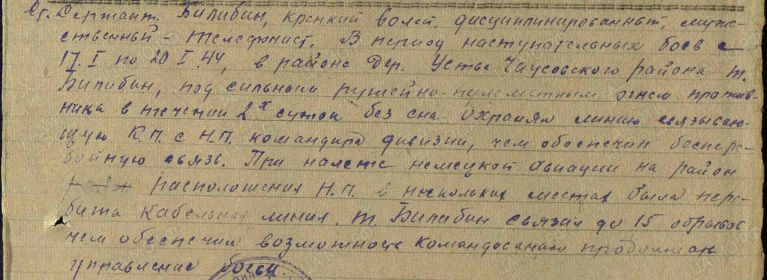 Ст. Сержант. Билибин, крепкий волей, дисциплинированный, муже-
ственный - телефонист. В период наступательных боев с
17.I по 20 I.44, в районе дер. Устье Чаусовского района т.
Билибин, под сильным ружейно-пулеметным огнем против-
ника в течении 2х суток без сна охранял линию связываю-
щую К.П. с Н.П. командира дивизии, чем обеспечил беспере-
бойную связь. При налете немецкой авиации на район
расположения Н.П. в нескольких местах была пере-
бита кабельная линия. т. Билибин связал до 15 обрывов
чем обеспечил возможность командованию продолжать
управление боем.